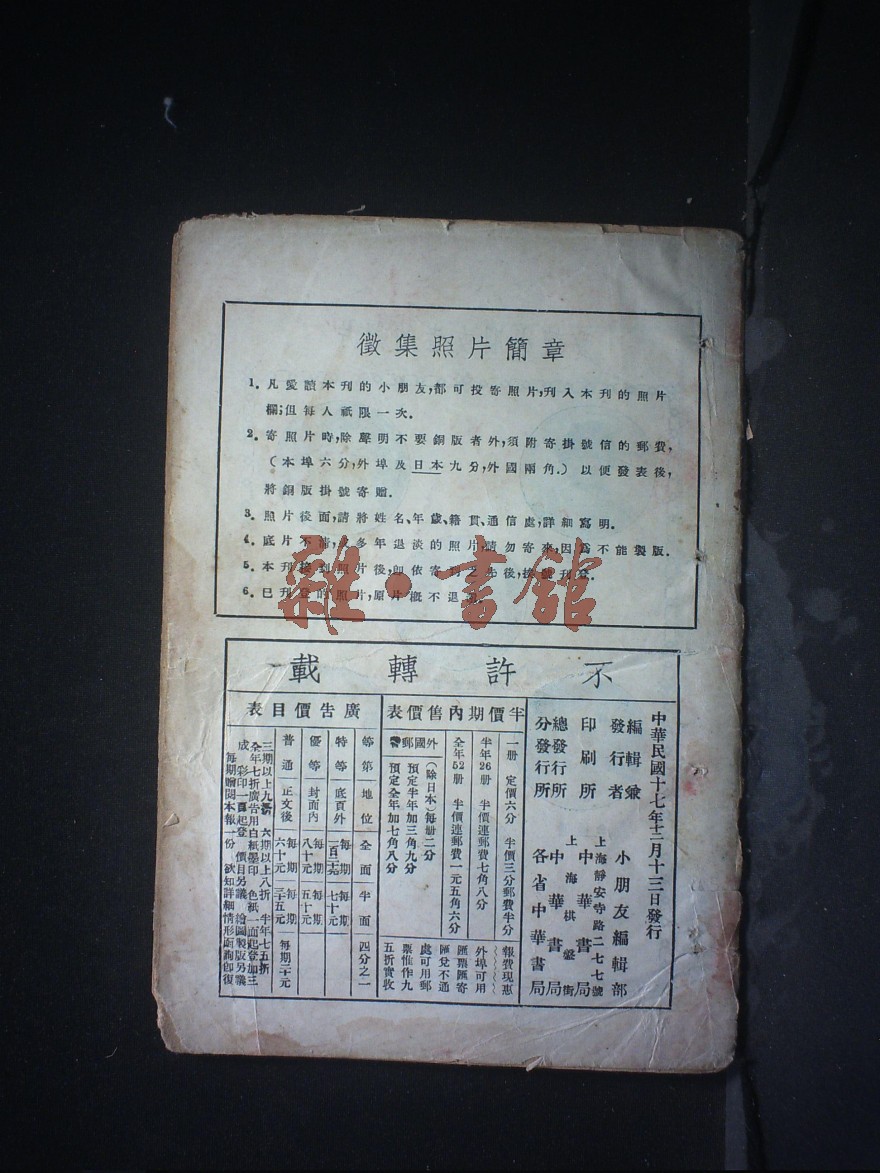 徵集照片簡章
1. 凡愛讀本刊的小朋友,都可投寄照片,刊入本刊的照片
欄;但每人祇限一次。
2. 寄照片時,除聲明不要銅版者外,須附寄掛號信的郵費,
(本埠六分,外埠及日本九分,外國兩角.)以便發表後,
將銅版掛號寄贈。
3. 照片後面,請將姓名、年歲、籍貫、通信處,詳細寫明。
4. 底片不清,及多年退淡的照片,請勿寄來,因爲不能製版。
5. 本刊接到照片後,卽依寄到之先後,挨號刊登。
6. 已刊登的照片,原片槪不退
雜·書館
不許轉載
中華民國十七年十二月十三日發行
編輯兼發行者 小朋友編輯部
印刷所 上海靜安寺路二七七號 中華書局
總發行所 上海棋盤街 中華書局
分發行所 各省中華書局
半價期內售價表
一册 定價六分 半價三分郵費半分
半年26册 半價連郵費七角八分
全年52册 半價連郵費一元五角六分
外國郵費(除日本)每册二分
預定半年加三角九分
預定全年加七角八分
報費現惠
外埠可用
匯票匯寄
匯兌不通
處可用郵
票惟作九
五折實收
廣告價目表
等第 地位 全面 半面 四分之一
特等 底頁外 每期一百二十元 每期七十元
優等 封面內 每期八十元 每期五十元
普通 正文後 每期六十元 每期三十五元 每期二十元
三期以上九折 六期以上八折 半年七五折
全年七折廣告用白紙墨印 色紙一面起登加三
成 彩印一面起登 價目另議 繪圖製版另議
每期贈閱本報一份 欲知詳細情形函詢卽復